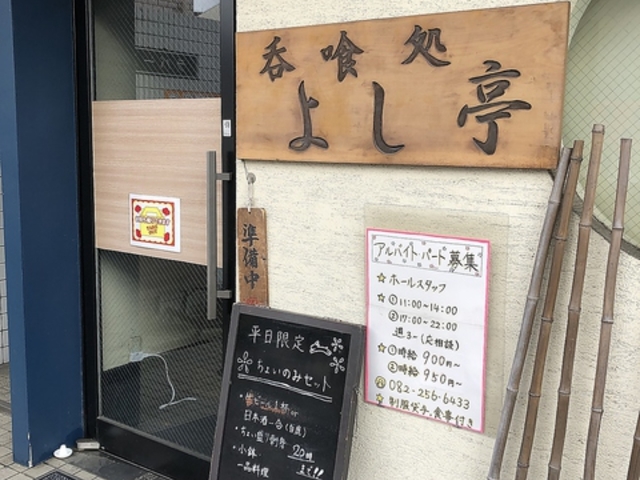 呑喰処
よし亭
準備中
アルバイト・パート募集
☆ホールスタッフ
☆①11:00~14:00
②17:00~22:00
週3~(応相談)
☆①時給 900円~
②時給 950円~
082-256-6433
☆制服貸与、食事付き
平日限定
ちょいのみセット
・生ビール1杯or
日本酒一合
・ちょい盛り刺身
・小鉢
一品料理
20時
まで!!